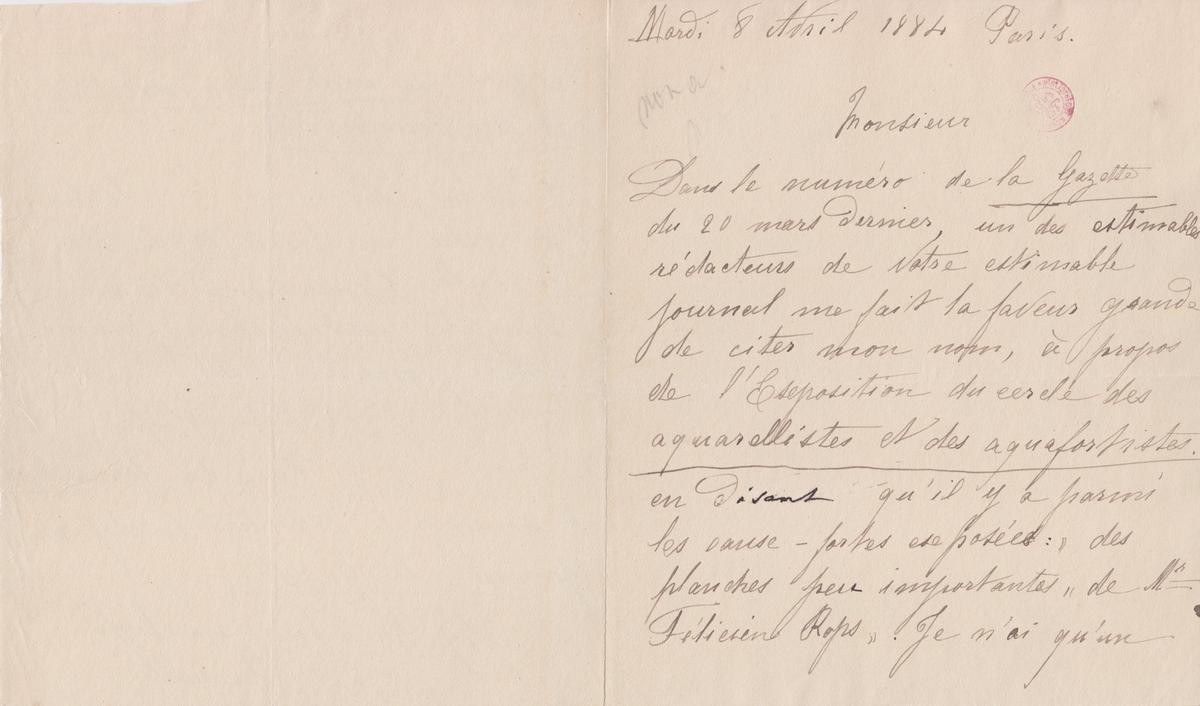 Mardi 8 Avril 1884 Paris.
Monsieur
Dans le numéro de la Gazette
du 20 mars dernier, un des estimables
rédacteurs de votre estimable
journal me fait la faveur grande
de citer mon nom, à propos
de l'Exposition du cercle des
aquarellistes et des aquafortistes.
en disant qu'il y a parmi
les eaux-fortes exposées: " des
planches peu importantes " de Mr
Félicien Rops ". Je n'ai qu'un